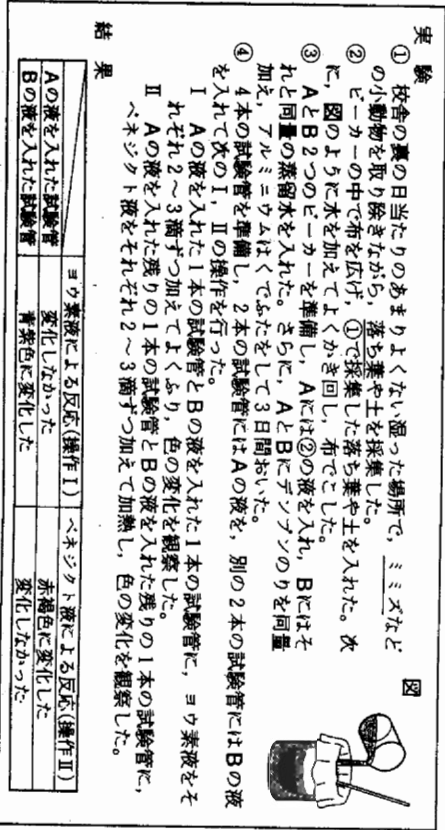 実験
① 校舎の裏の日当たりのあまりよくない湿った場所で，ミミズなど
の小動物を取り除きながら，落ち葉や土を採集した。
② ビーカーの中で布を広げ，①で採集した落ち葉や土を入れた。次
に，図のように水を加えてよくかき回し，布でこした。
③ AとB2つのビーカーを準備し，Aには②の液を入れ，Bにはそ
れと同量の蒸留水を入れた。さらに，AとBにデンプンのりを同量
加え，アルミニウムはくでふたをして3日間おいた。
④ 4本の試験管を準備し，2本の試験管にはAの液を，別の2本の試験管にはBの液
を入れて次のⅠ，Ⅱの操作を行った。
Ⅰ Aの液を入れた1本の試験管とBの液を入れた1本の試験管に，ヨウ素液をそ
れぞれ2～3滴ずつ加えてよくふり，色の変化を観察した。
Ⅱ Aの液を入れた残りの1本の試験管とBの液を入れた残りの1本の試験管に，
ベネジクト液をそれぞれ2～3滴ずつ加えて加熱し，色の変化を観察した。
図
結果
ヨウ素液による反応(操作Ⅰ) ベネジクト液による反応(操作Ⅱ)
Aの液を入れた試験管 変化しなかった 赤褐色に変化した
Bの液を入れた試験管 青紫色に変化した 変化しなかった